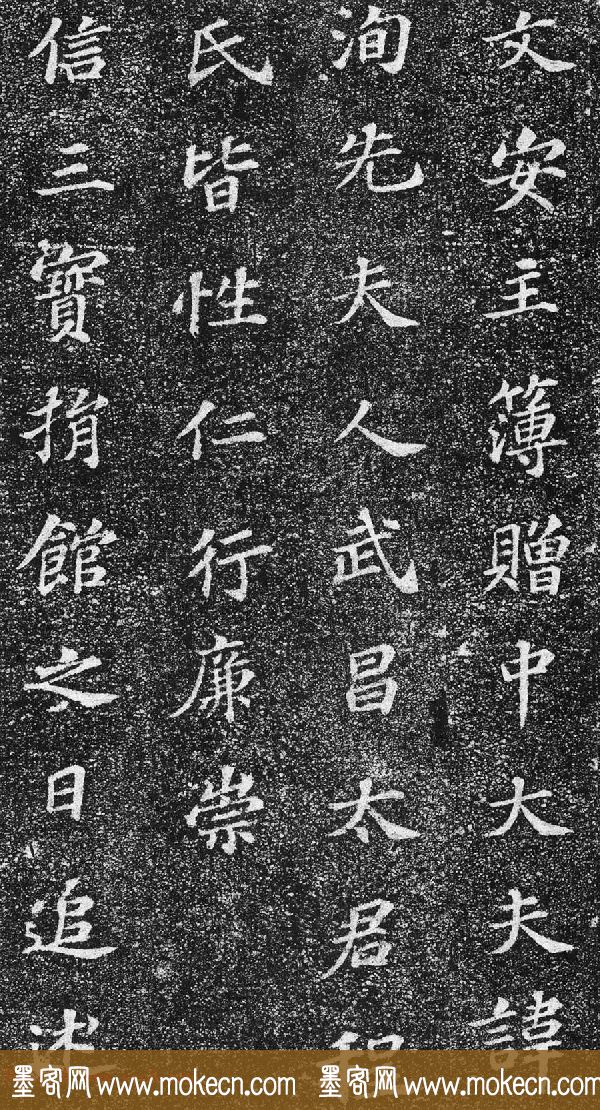 文安主簿贈中大夫諱
洵先夫人武昌太君程
氏皆性仁行廉崇
信三寶捐館之日追述
墨客网 www.mokecn.com 墨客网 www.mokecn.com